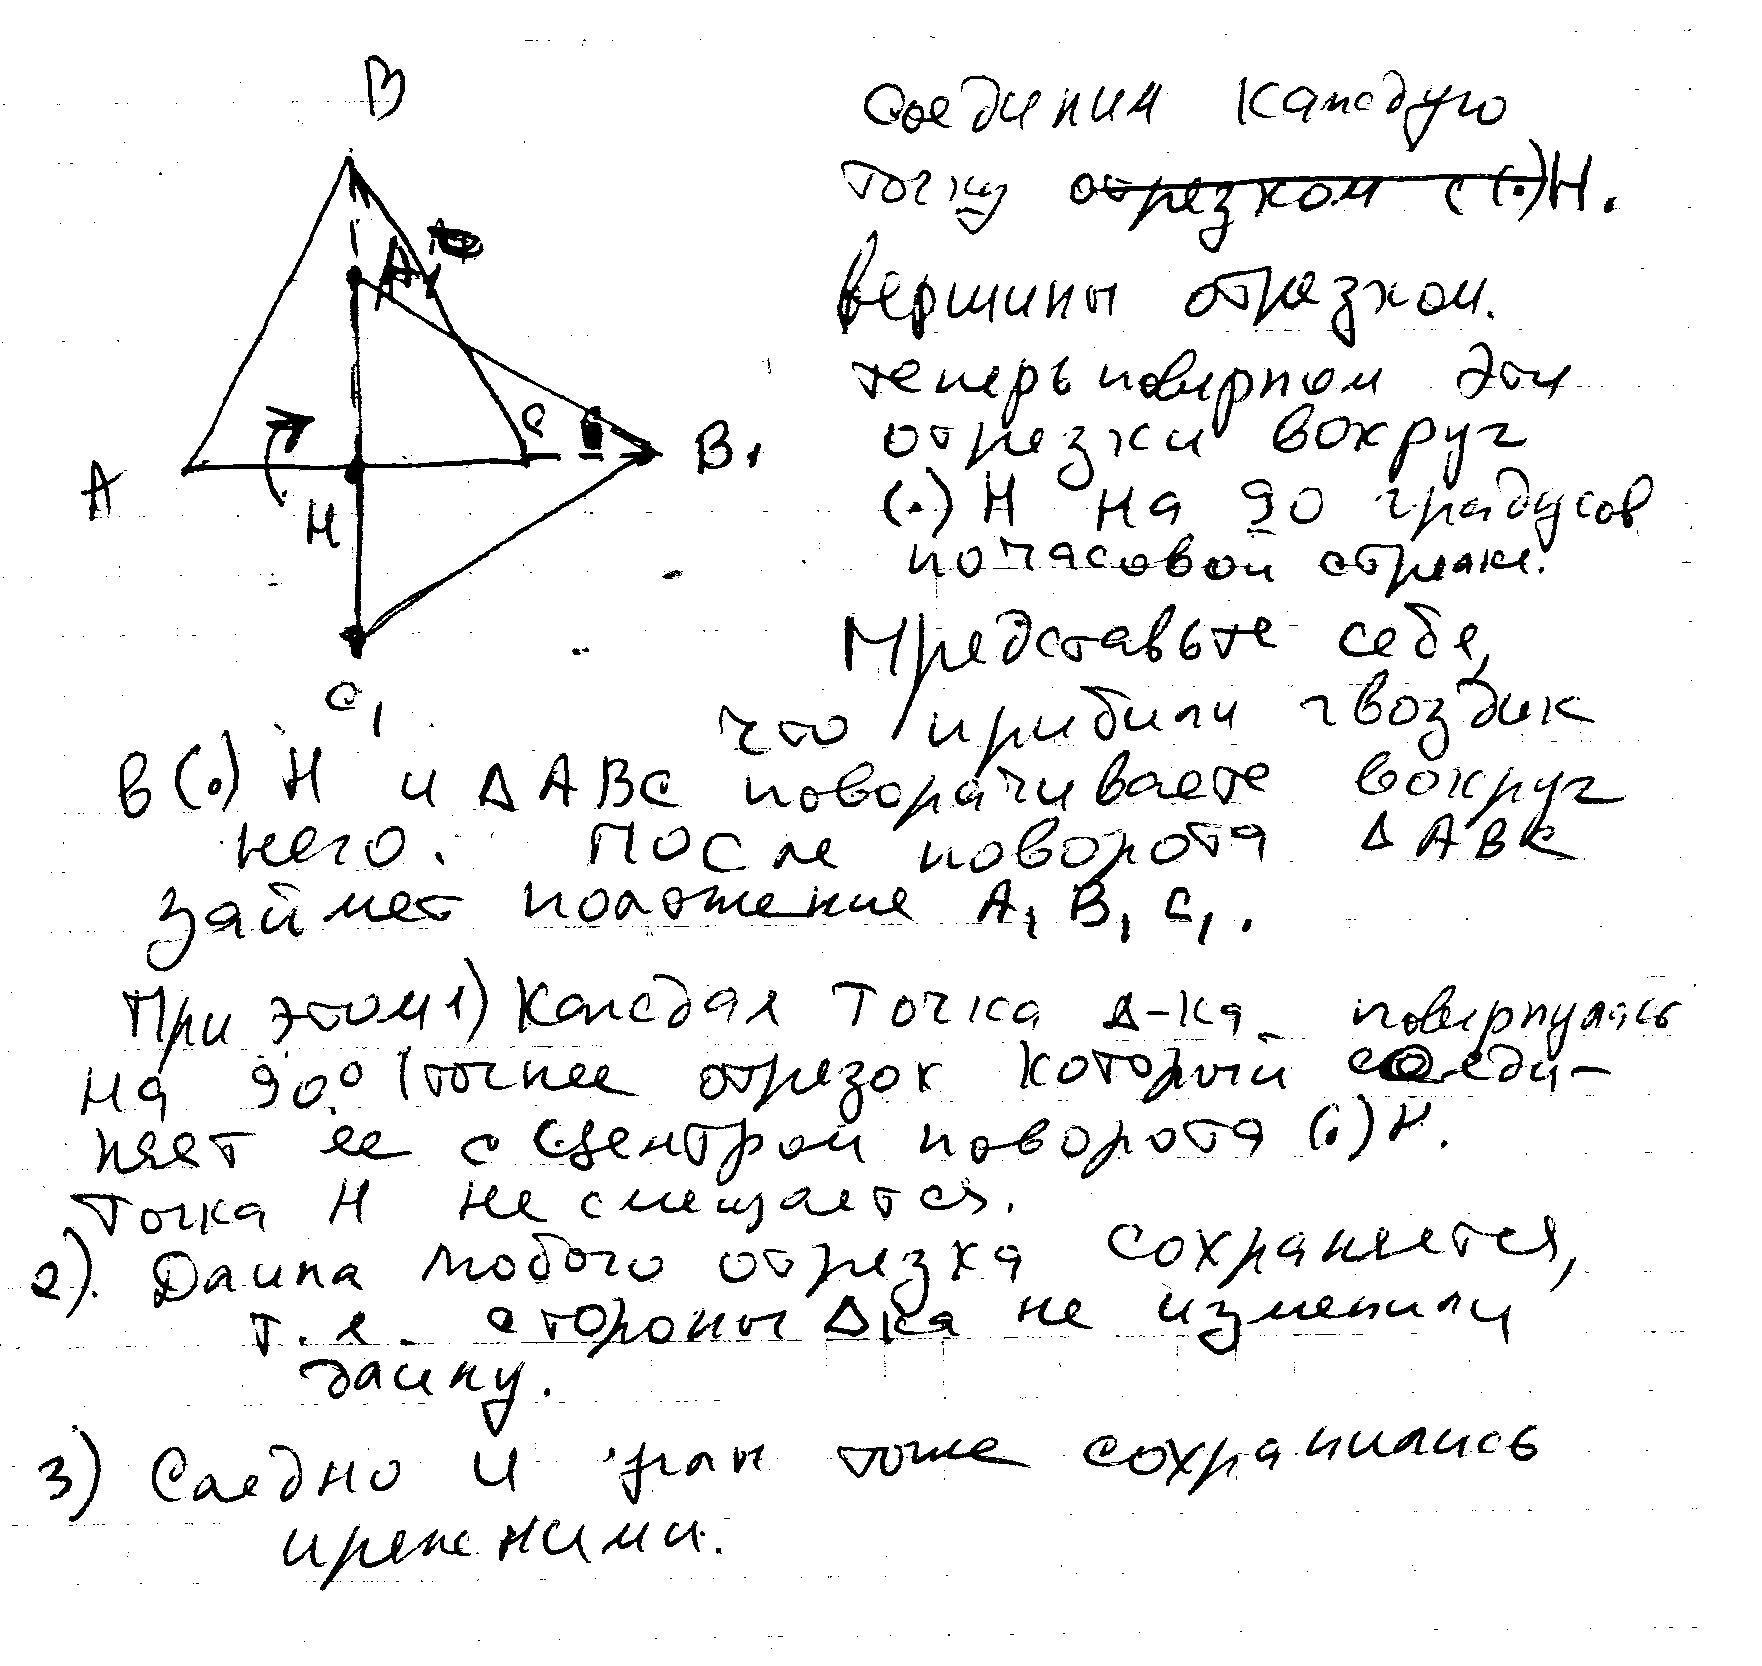 B
A₁
A
C
B₁
H
C₁
Соединим каждую
точку отрезком с (.)H.
вершины отрезком.
теперь повернем эти
отрезки вокруг
(.) H на 90 градусов
по часовой стрелке.
Представьте себе,
что прибили гвоздик
в (.) H и Δ ABC поворачиваете вокруг
него. После поворота Δ ABC
займет положение A₁ B₁ C₁.
При этом 1) Каждая точка Δ-ка повернулась
на 90° (точнее отрезок который соеди-
няет ее с центром поворота (.) H.
Точка H не смещается.
2). Длина любого отрезка сохраняется,
т.е. стороны Δка не изменили
длину.
3) Следно и углы тоже сохранились
прежними.